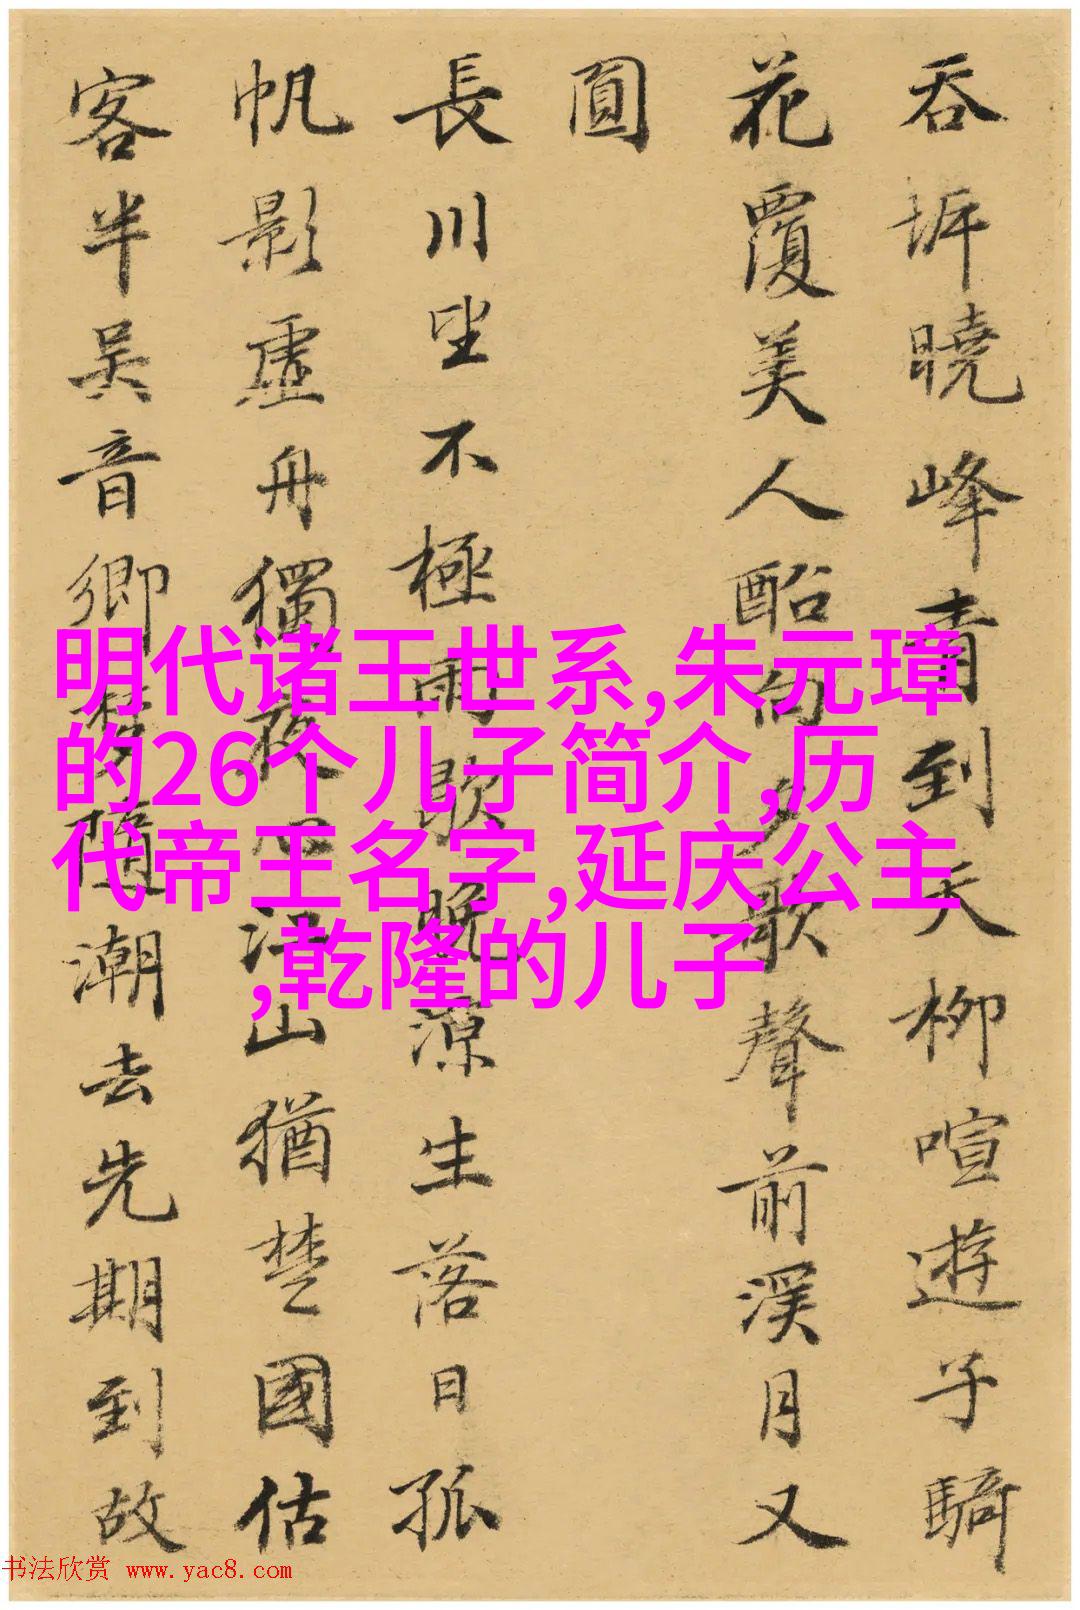 吞坼曉峰青到天柳喧遊子騎
花覆美人酩向夕歌聲前溪月又
圓
長川坐不極雨歇晚涼生落日孤
帆影虛舟獨夜心江山猶楚國估
客半吴音鄉夢隨潮去先期到故
明代诸王世系,朱元璋
的26个儿子简介,历
代帝王名字,延庆公主
,乾隆的儿子
书法欣赏 www.yac8.com